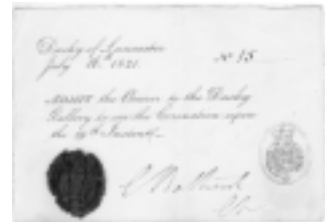 Duchy of Lancaster
July 16th 1821. No 15
ADMIT the Bearer to the Duchy
Gallery to see the Coronation upon
the 19th Instant.